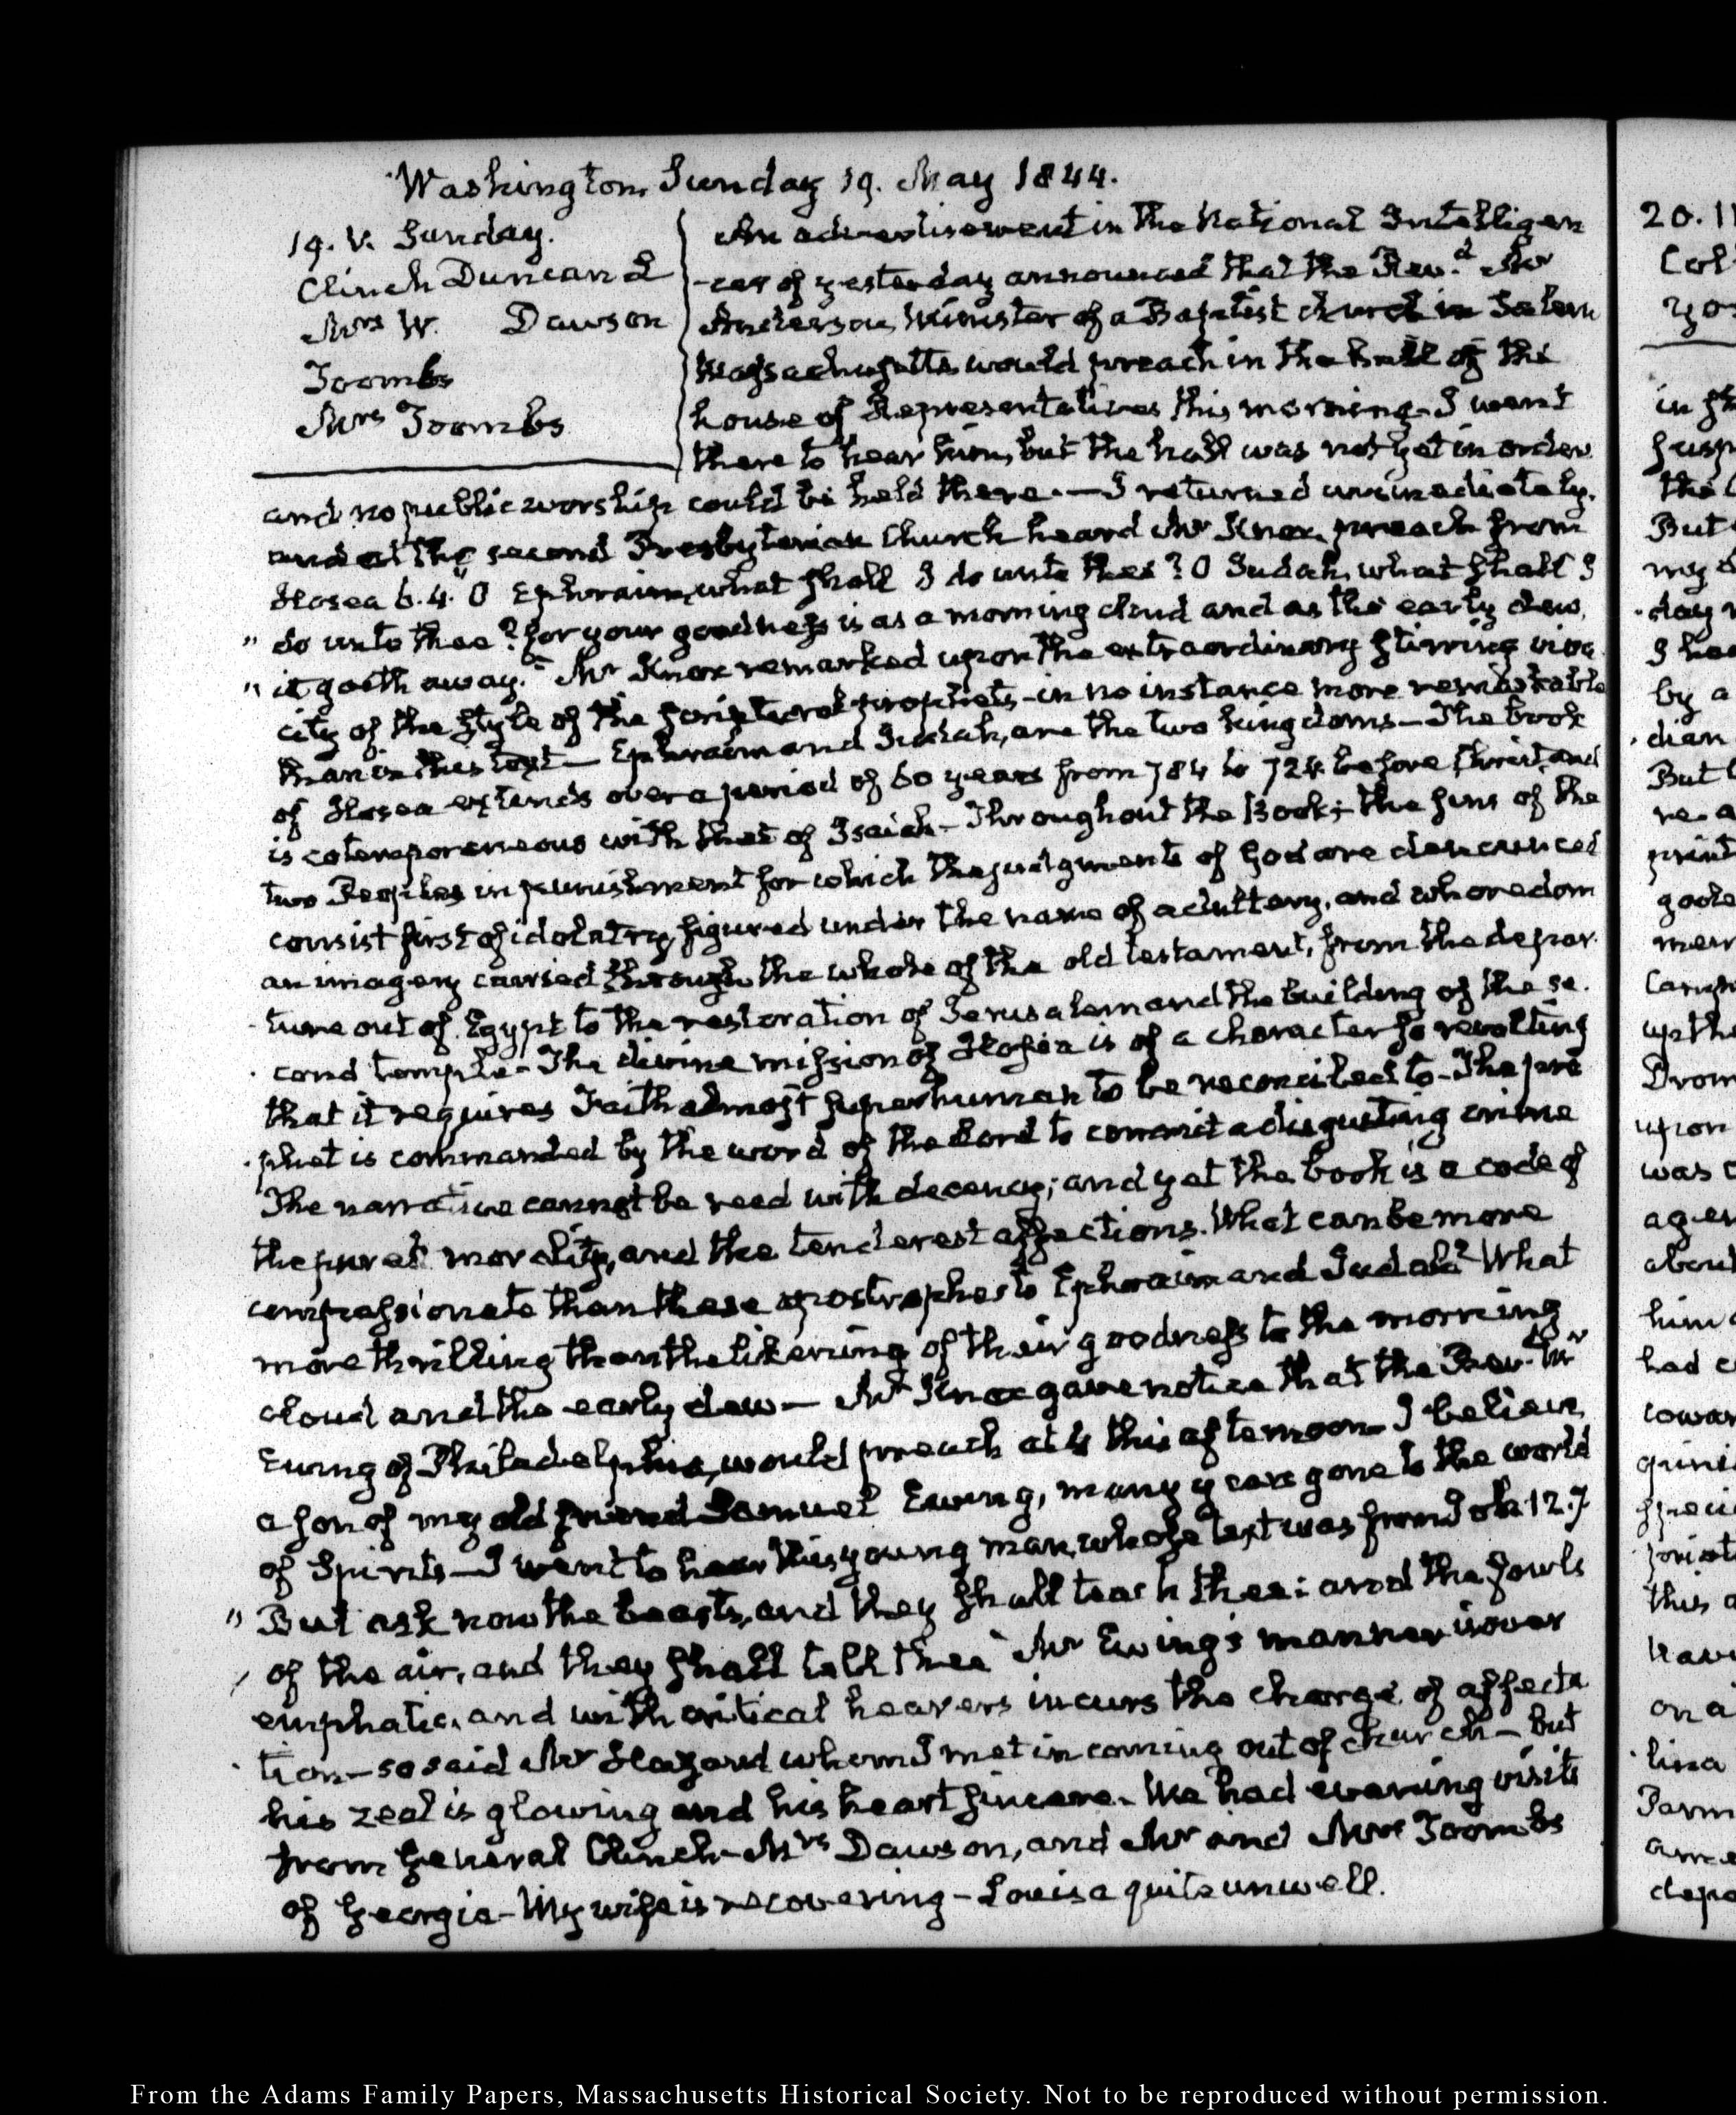 Washington, Sunday 19. May 1844.
19. V. Sunday.
Clinch Duncan L
Mrs W. Dawson
Toombs
Mrs Toombs
An advertisement in the National Intelligen
-cer of yesterday announced that the Revd. Mr
Anderson, Minister of a Baptist church in Salem
Massachusetts would preach in the hall of the
house of Representatives this morning. I went
there to hear him, but the hall was not yet in order
and no public worship could be held there. — I returned immediately,
and at the second Presbyterian Church heard Mr Knox preach from
Hosea 6.4. "O Ephraim, what shall I do unto thee? O Judah, what shall I
" do unto thee? for your goodness is as a morning cloud and as the early dew,
" it goeth away." Mr Knox remarked upon the extraordinary stirring viva
city of the style of the scriptural prophets - in no instance more remarkable
than in this text — Ephraim and Judah, are the two kingdoms — The book
of Hosea extends over a period of 60 years from 784 to 724 before Christ, and
is cotemporaneous with that of Isaiah - Throughout the Book, the sins of the
two Peoples in punishment for which the judgments of God are denounced
consist first of idolatry, figured under the name of adultery, and whoredom
an imagery carried through the whole of the old testament, from the depar
ture out of Egypt to the restoration of Jerusalem and the building of the se.
cond temple - The divine mission of Hosea is of a character so revolting
that it requires Faith almost superhuman to be reconciled to - The pro
phet is commanded by the word of the Lord to commit a disgusting crime
The narrative cannot be read with decency; and yet the book is a code of
the purest morality, and the tenderest affections. What can be more
compassionate than these apostrophes to Ephraim and Judah? What
more thrilling than the likening of their goodness to the morning
cloud and the early dew — Mr Knox gave notice that the Revd. Mr
Ewing of Philadelphia, would preach at 4 this afternoon - I believe
a son of my old friend Samuel Ewing, many years gone to the world
of Spirits — I went to hear this young man, whose text was from Job 12.7
" But ask now the beasts, and they shall teach thee: and the fowls
of the air, and they shall tell thee" Mr Ewing's manner is over
emphatic, and with critical hearers incurs the charge of affecta
tion - so said Mr Hazard whom I met in coming out of church - but
his zeal is glowing and his heart sincere. We had evening visits
from General Clinch - Mrs Dawson, and Mr and Mrs Toombs
of Georgia - My wife is recovering - Louisa quite unwell.
From the Adams Family Papers, Massachusetts Historical Society. Not to be reproduced without permission.